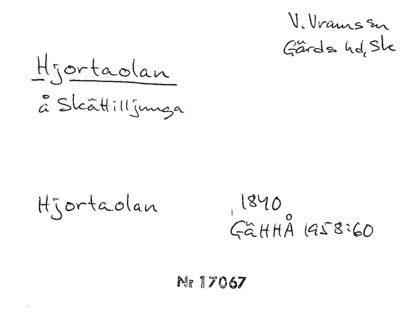 V. Vramssn
Gärds hd, Sk
Hjortaolan
å Skättilljunga
Hjortaolan
1840
GäHHÅ 1958:60
Nr 17067